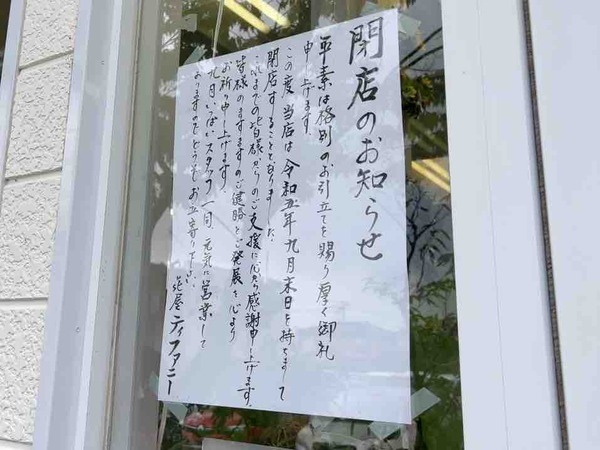 閉店のお知らせ
平素は格別のお引立てを賜り厚く御礼
申し上げます。
この度当店は令和五年九月末日を持ちまして
閉店することとなりました。
これまでの皆様からのご支援に心から感謝申し上げます。
皆様のますますのご健勝とご発展を心より
お祈り申し上げます。
九月いっぱいスタッフ一同、元気に営業して
おりますのでどうぞお立寄り下さい。
花屋ティファニー